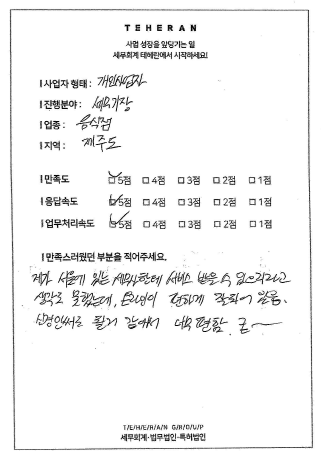 TEHERAN
사업 성장을 앞당기는 일
세무회계 테헤란에서 시작하세요!
사업자 형태 : 개인사업자
진행분야 : 세무기장
업종 : 음식점
지역 : 제주도
만족도 ☑5점 □4점 □3점 □2점 □1점
응답속도 ☑5점 □4점 □3점 □2점 □1점
업무처리속도 ☑5점 □4점 □3점 □2점 □1점
만족스러웠던 부분을 적어주세요.
제가 서울에 있는 세무사한테 서비스 받을 수 있으리라고
생각도 못했는데, 온라인이 편하게 잘되어 있음.
신경안써도 될거 같아서 너무 편함. 굳~
TEHERAN GROUP
세무회계·법무법인·특허법인